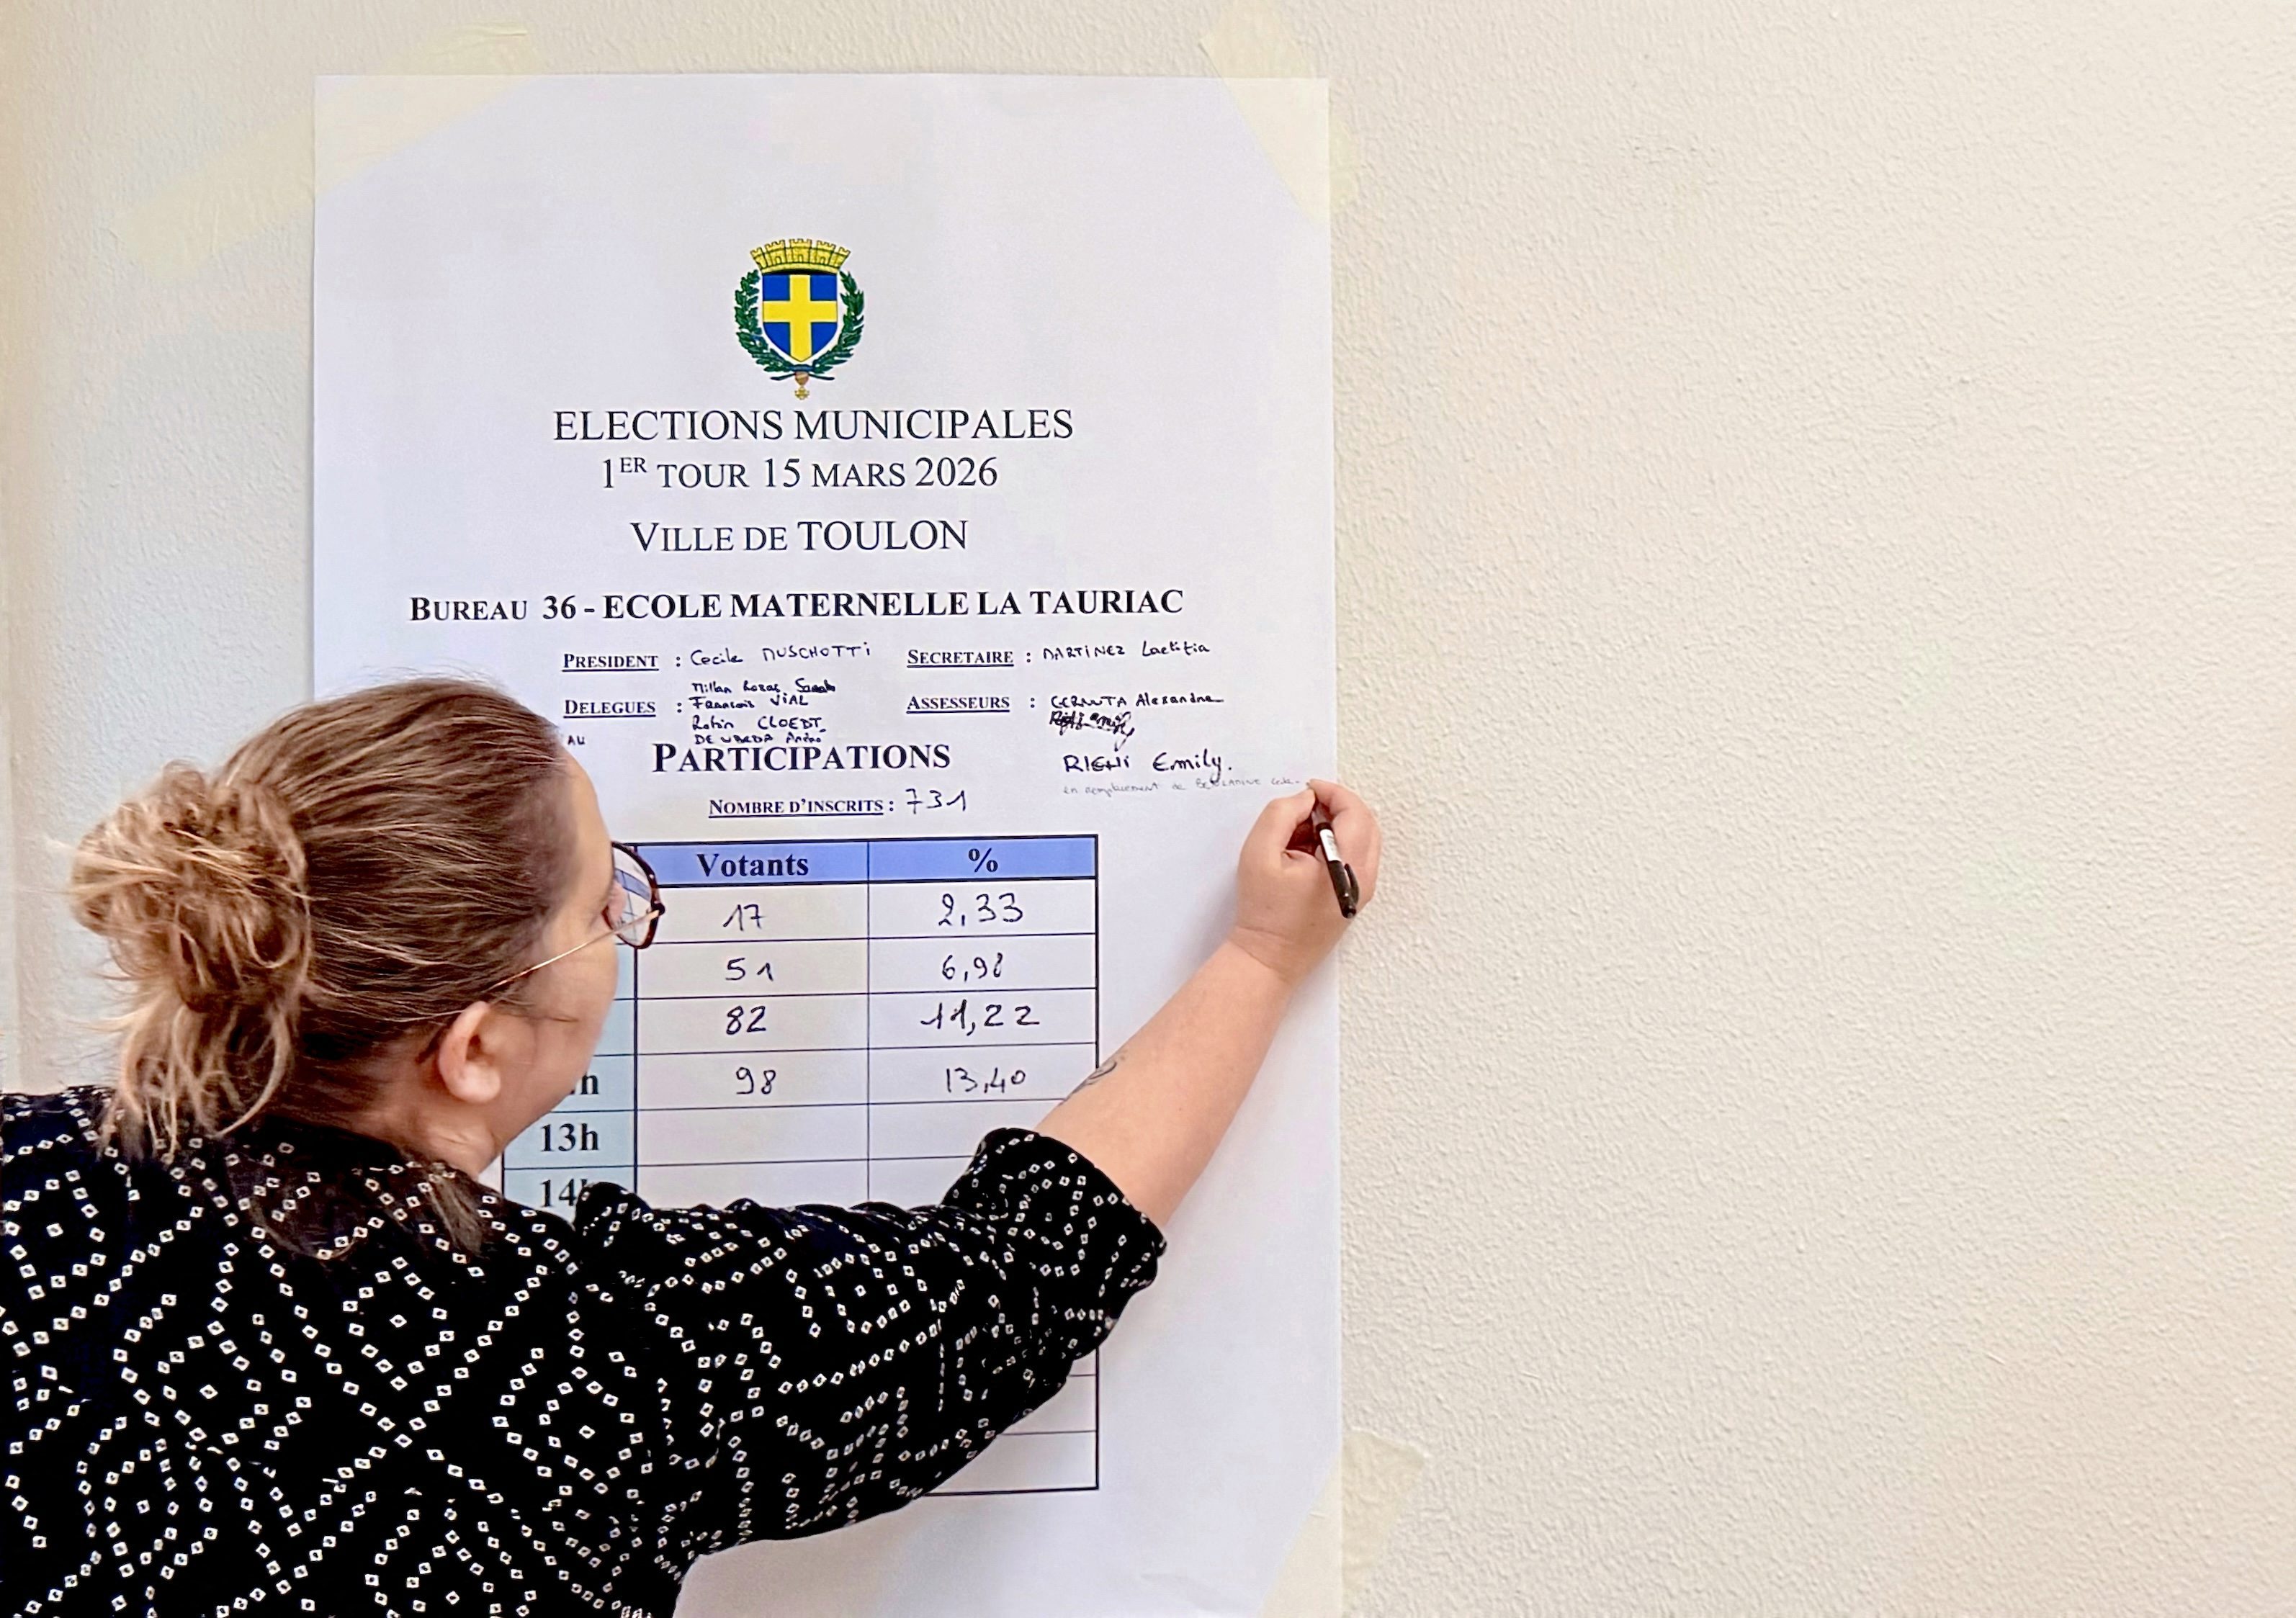 ELECTIONS MUNICIPALES
1ER TOUR 15 MARS 2026
VILLE DE TOULON
BUREAU 36 - ECOLE MATERNELLE LA TAURIAC
PRESIDENT : Cecile MUSCHOTTI SECRETAIRE : MARTINEZ Laetitia
DELEGUES : Millan Sarah
François VIAL
Robin CLOEDT
DE André
ASSESSEURS : Alexandre
AU
PARTICIPATIONS
RIENI Emily.
en remplacement de
NOMBRE D'INSCRITS : 731
Votants %
17 2,33
51 6,98
82 11,22
h 98 13,40
13h
14h